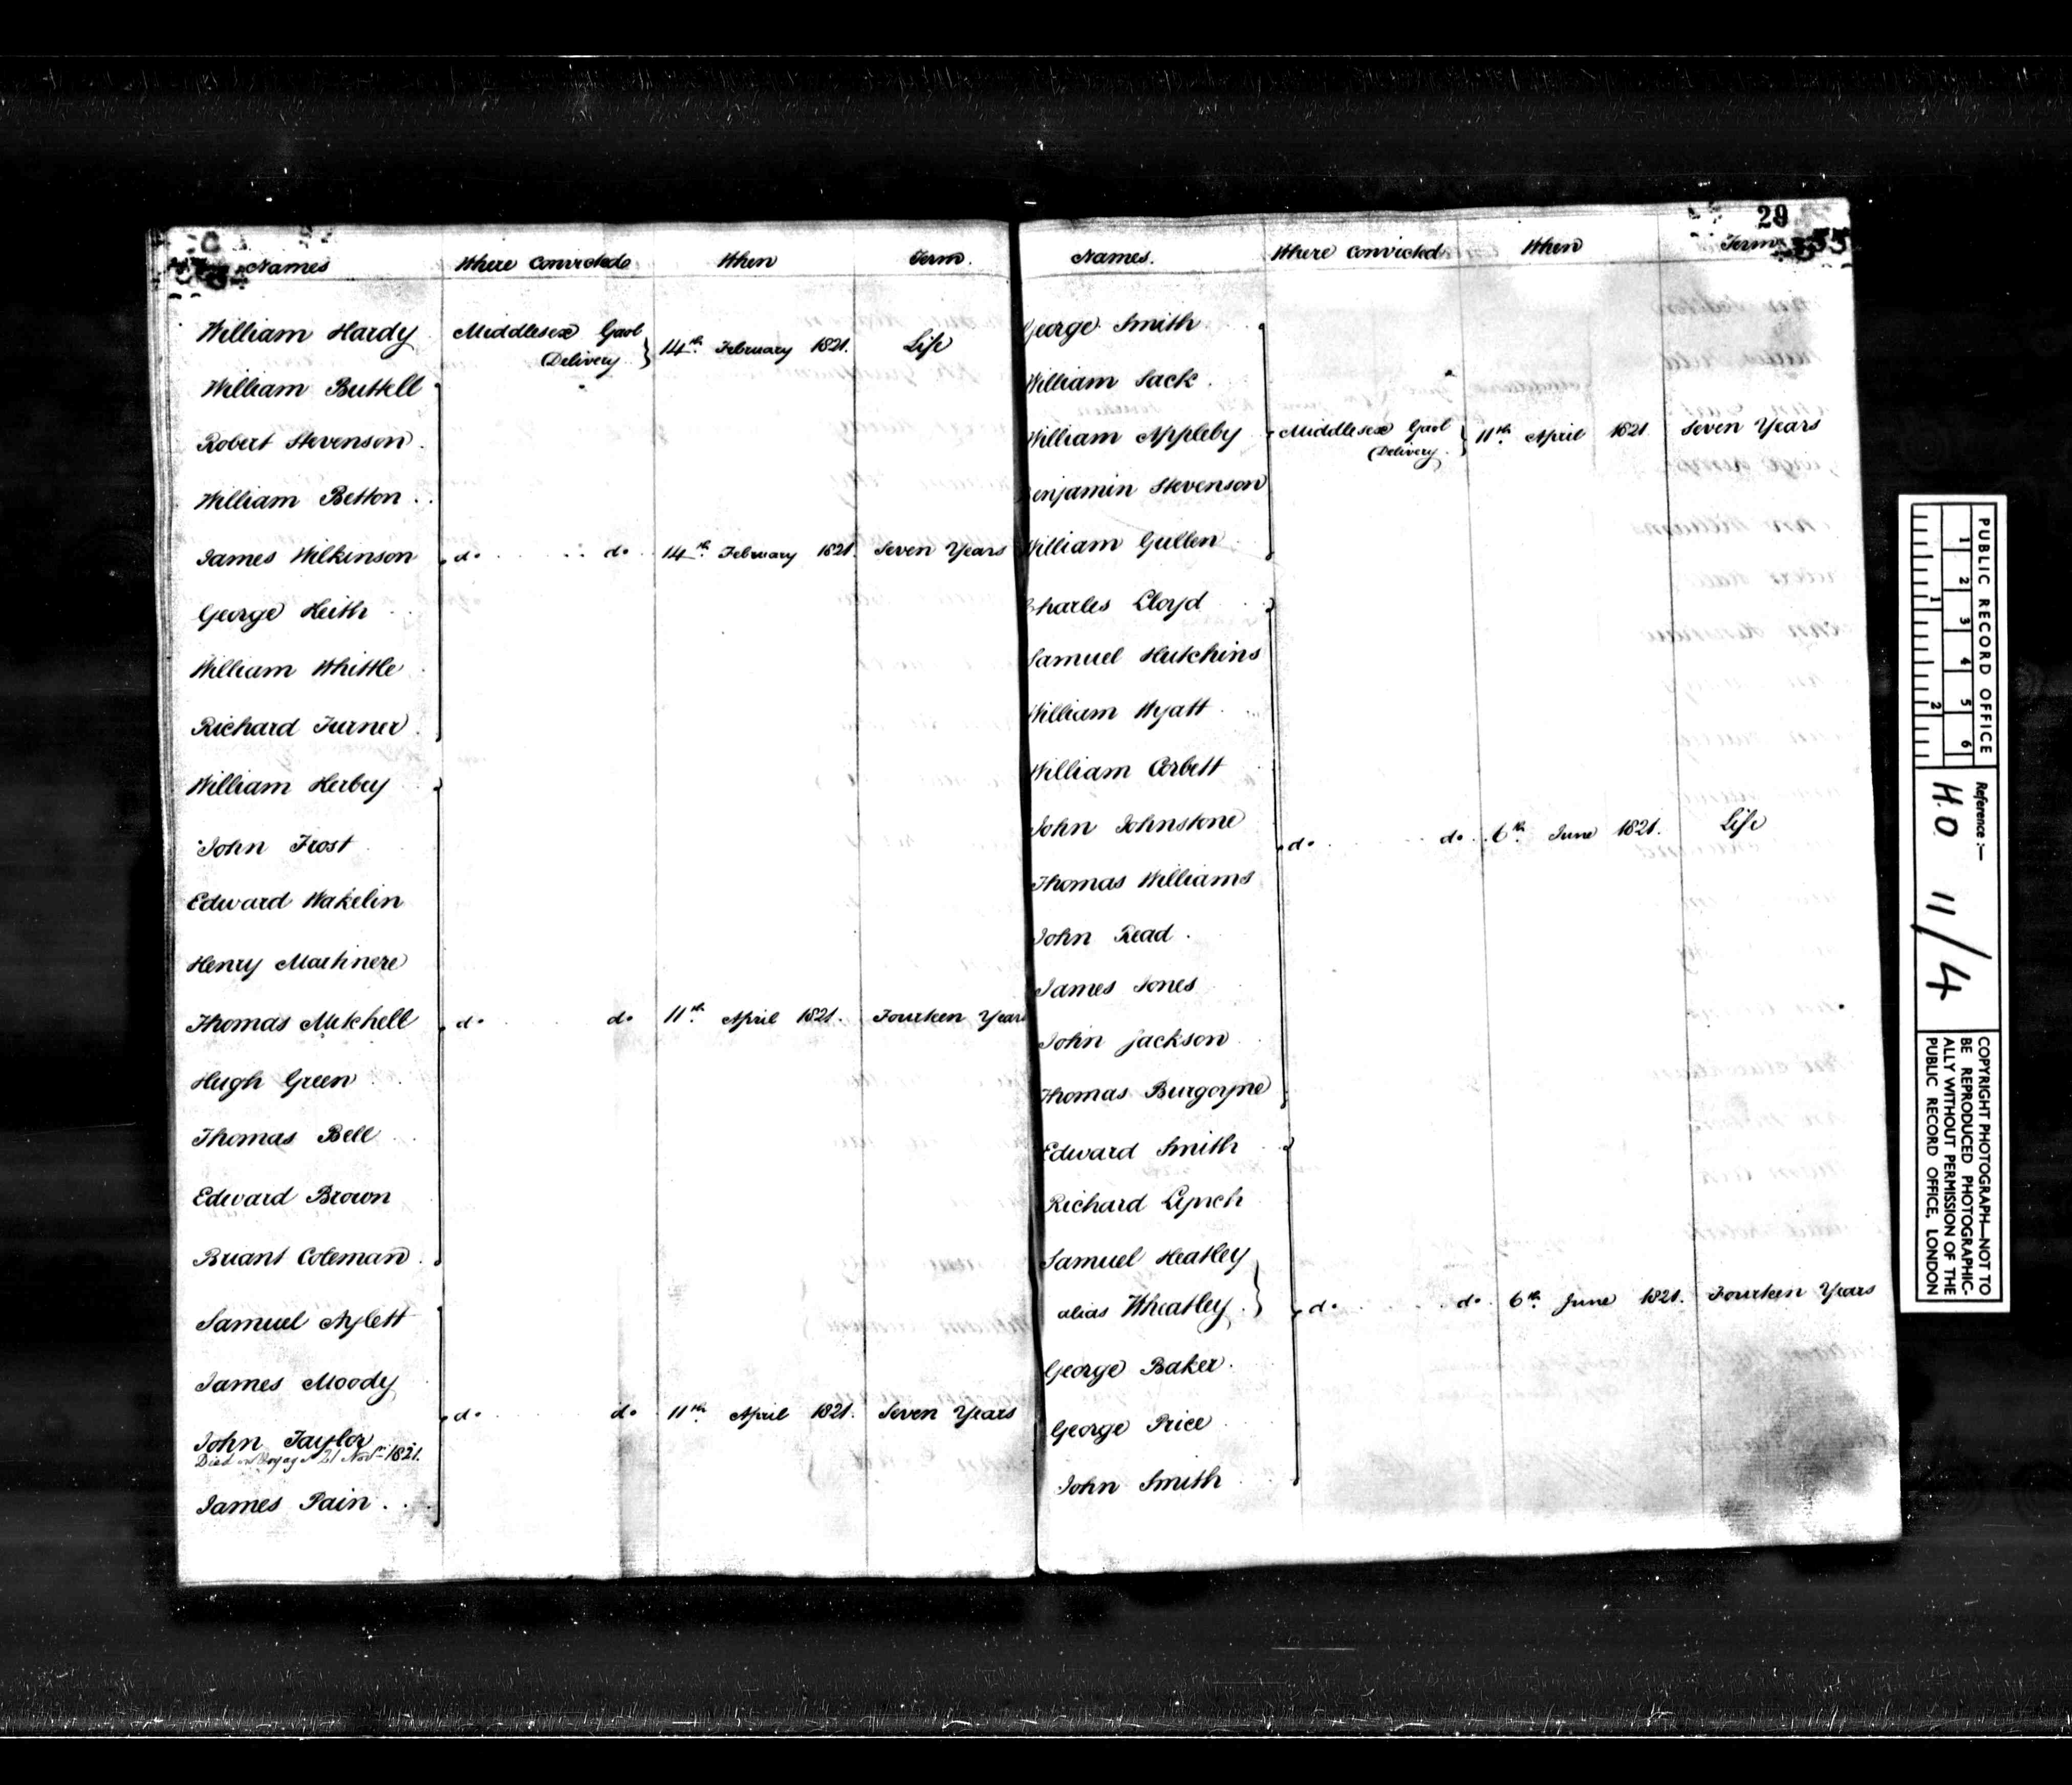 Names Where Convicted When Term.
William Hardy Middlesex Gaol Delivery } 14th February 1821. Life
William Buttell
Robert Stevenson
William Betton
James Wilkinson do do 14th February 1821. Seven Years
George Keith
William Whittle
Richard Turner
William Herbey
John Frost
Edward Wakelin
Henry Machinere
Thomas Mitchell do do 11th April 1821. Fourteen Years
Hugh Green
Thomas Bell
Edward Brown
Briant Coleman
Samuel Aylett
James Moody
do do 11th April 1821. Seven Years
John Taylor
Died on Voyage 21 Novr 1821.
James Pain
29
Names. Where Convicted When Term
George Smith
William Sack
William Appleby Middlesex Gaol Delivery } 11th April 1821 Seven Years
Benjamin Stevenson
William Gullen
Charles Lloyd
Samuel Hutchins
William Wyatt
William Corbett
John Johnstone do do 6th June 1821. Life
Thomas Williams
John Read
James Jones
John Jackson
Thomas Burgoyne
Edward Smith
Richard Lynch
Samuel Heatley
alias Wheatley } do do 6th June 1821. Fourteen Years
George Baker
George Price
John Smith
PUBLIC RECORD OFFICE
1 2 3 4 5 6
1 2
Reference:—
H.O 11/4
COPYRIGHT PHOTOGRAPH—NOT TO
BE REPRODUCED PHOTOGRAPHIC-
ALLY WITHOUT PERMISSION OF THE
PUBLIC RECORD OFFICE, LONDON